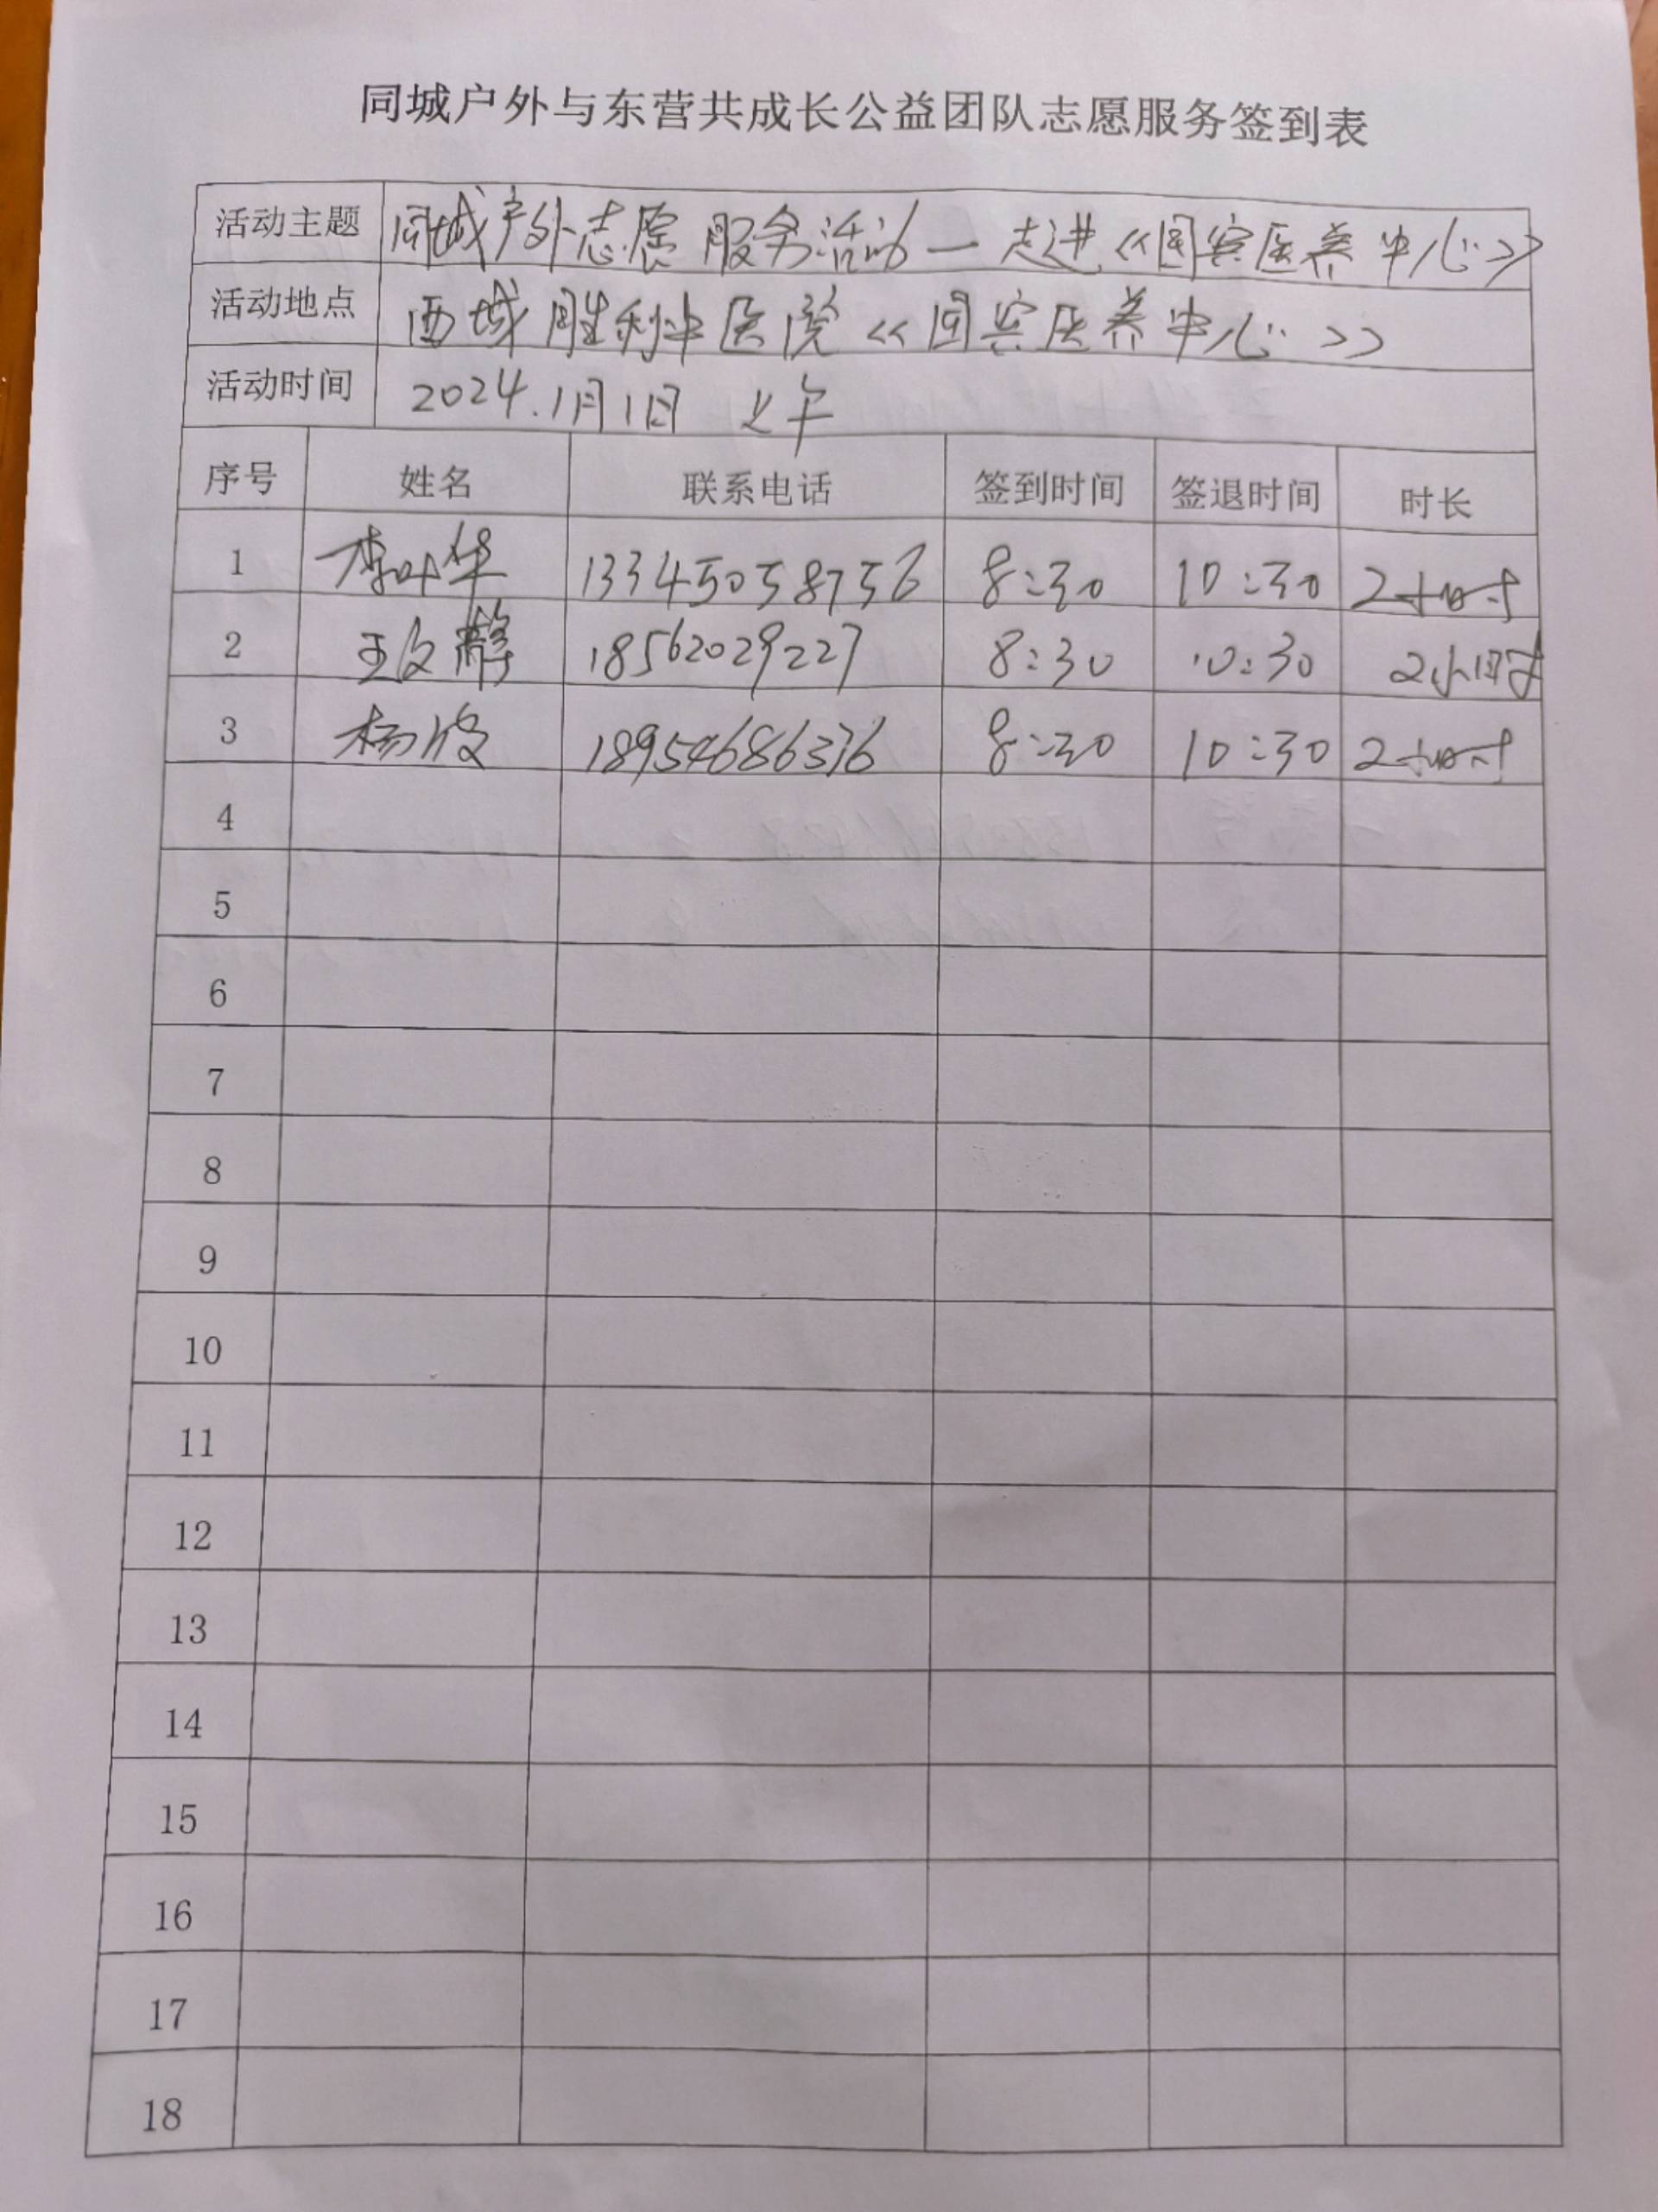 同城户外与东营共成长公益团队志愿服务签到表
活动主题 同城户外志愿服务活动一走进《国宾医养中心》
活动地点 西城胜利中医院《国宾医养中心》
活动时间 2024.1月1日 上午
序号 姓名 联系电话 签到时间 签退时间 时长
1 李叶华 13345058756 8:30 10:30 2小时
2 王文静 18562029227 8:30 10:30 2小时
3 杨波 18954686376 8:30 10:30 2小时
4
5
6
7
8
9
10
11
12
13
14
15
16
17
18